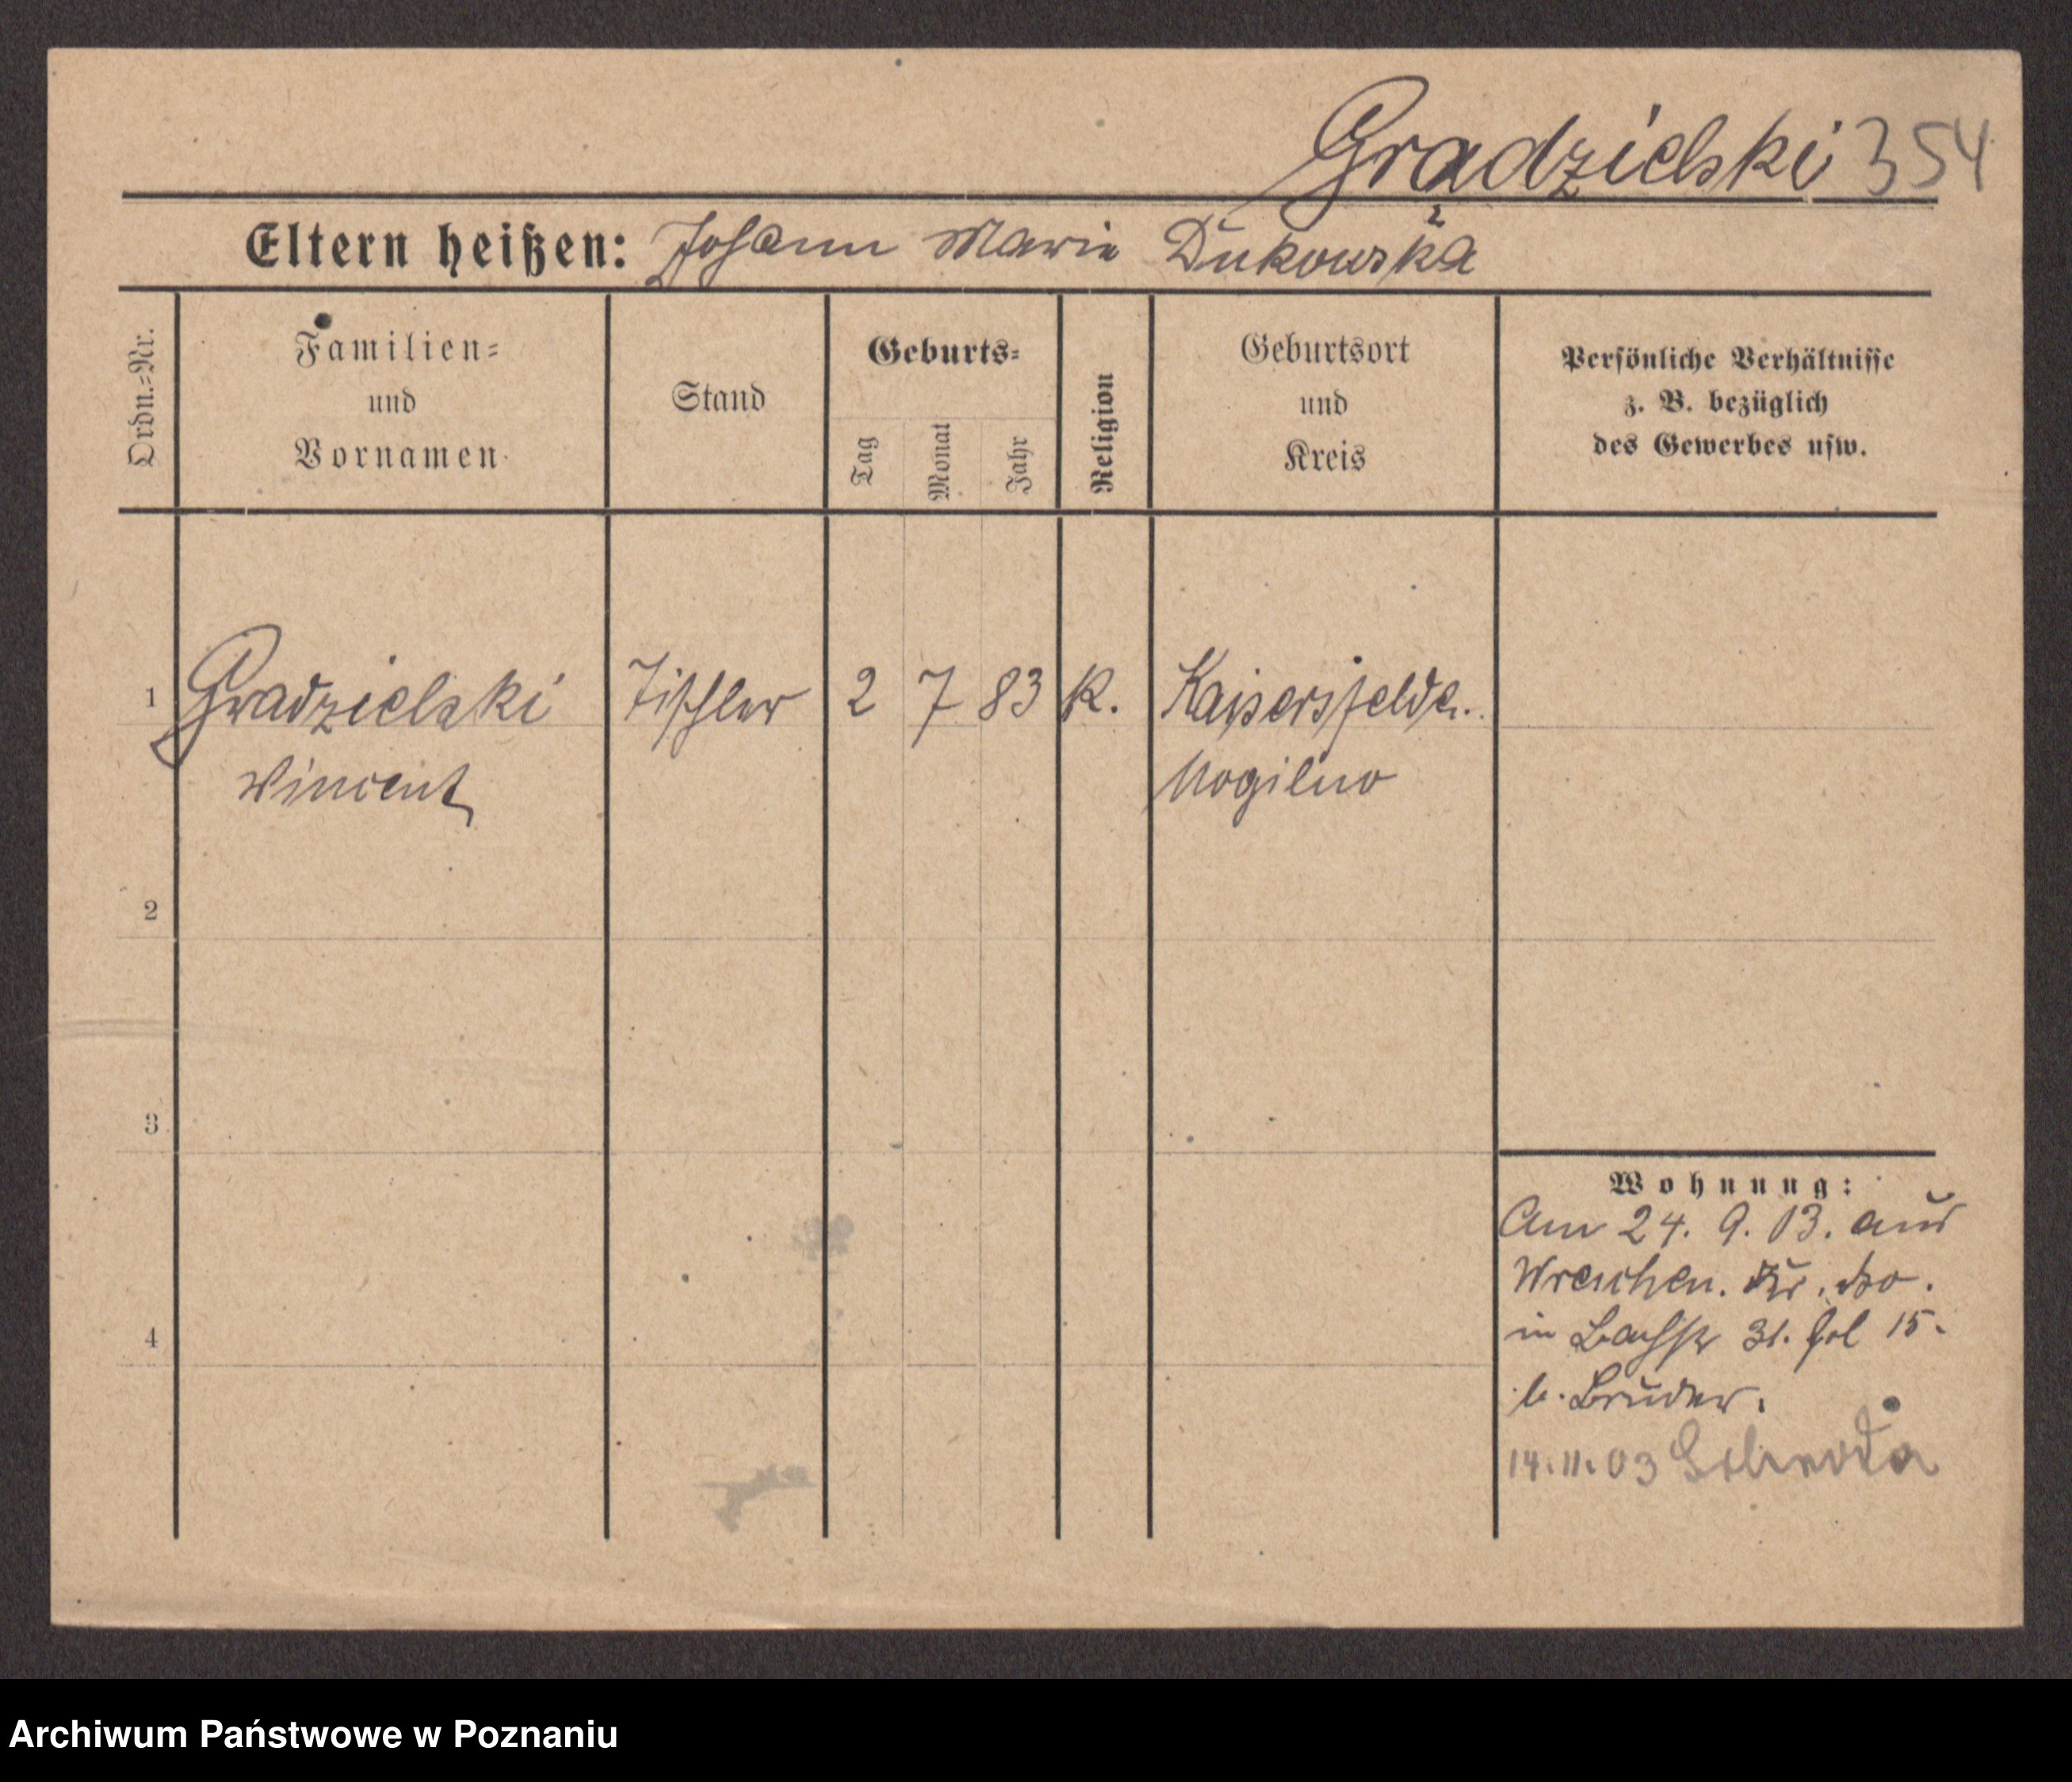 Grądzielski 354
Eltern heißen: Johann Marie Dukowska
Ordn.-Nr.
Familien-
und
Vornamen
Stand
Geburts-
Tag
Monat
Jahr
Religion
Geburtsort
und
Kreis
Persönliche Verhältnisse
z. B. bezüglich
des Gewerbes usw.
1 Gradzielski Tischler 2 7 83 K. Kaisersfelde.
Wincent Mogilno
2
3
4
Wohnung:
Am 24. 9. 03. aus
Wreschen.
in 31. 15.
b. Bruder.
14.11.03 Schroda
Archiwum Państwowe w Poznaniu